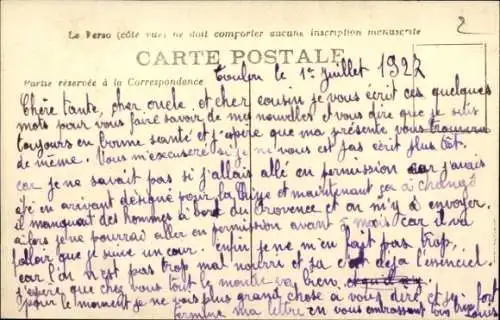 Le Verso (côté vue) ne doit comporter aucune inscription manuscrite
2
CARTE POSTALE
Partie réservée à la Correspondance
Toulon le 1er Juillet 1927
Chère tante, cher oncle et cher cousin je vous écrit ces quelques
mots pour vous faire savoir de mes nouvelles et vous dire que je suis
toujours en bonne santé et j'espère que ma présente vous trouvera
de même. Vous m'excuserez si je ne vous est pas écrit plus tôt.
car je ne savait pas si j'allais allé en permission car j'avais
été en arrivant désigné pour la et maintenant ça a changé
il manquait des hommes à bord du Provence et on m'y a envoyer.
alors je ne pourrai aller en permission avant mois car il va
falloir que je suive un cour. Enfin je ne m'en fait pas trop,
car l'on n'est pas trop mal nourri et sa c'est déjà l'essenciel.
j'espère que chez vous tout le monde va bien,
pour le moment je ne vois plus grand chose à vous dire et je
termine ma lettre en vous embrassant
Louis